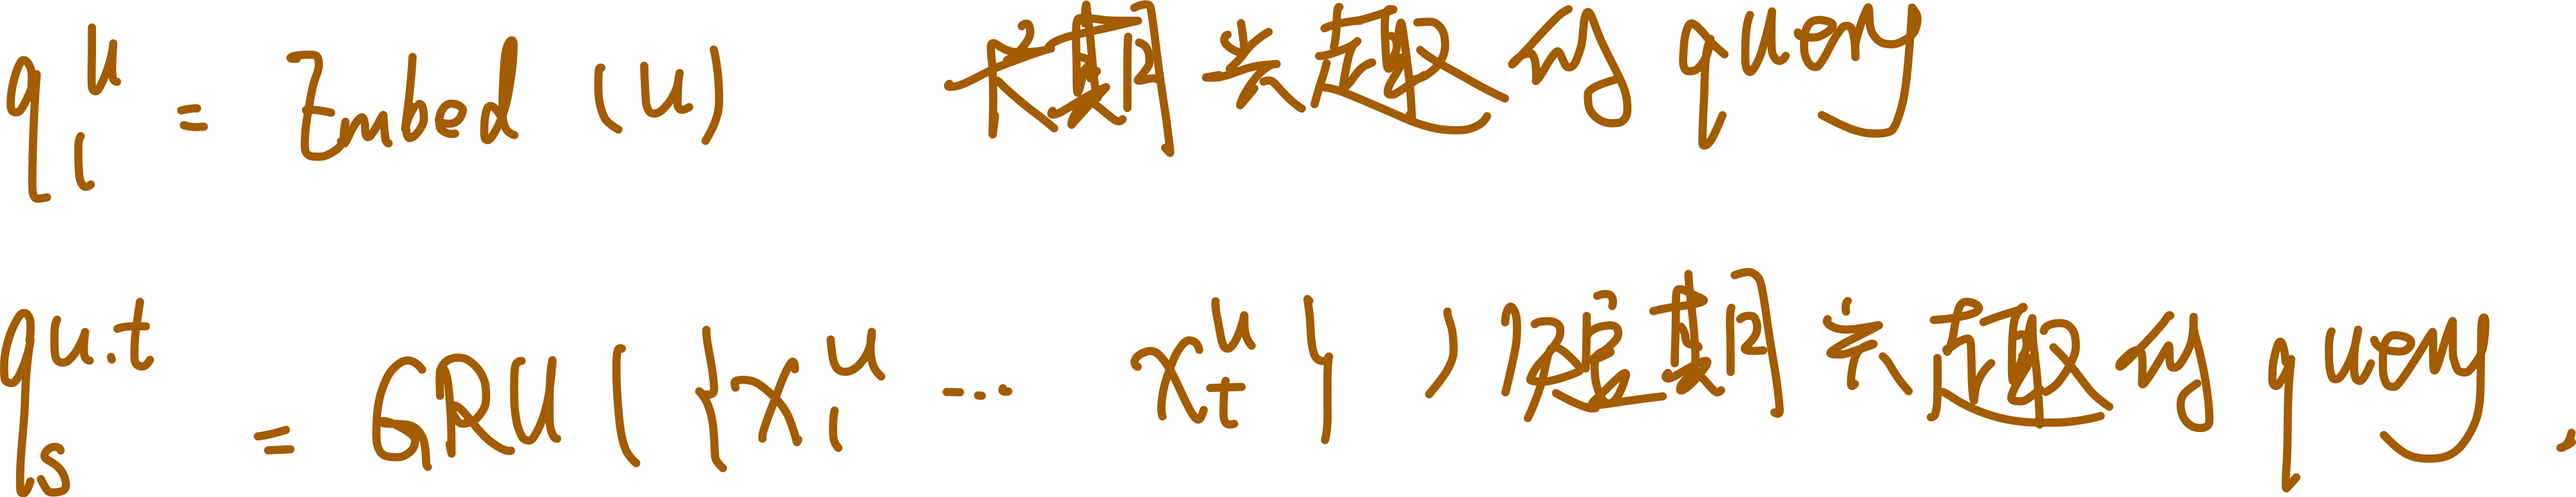 q_l^u = Embed (u) 长期兴趣的 query
q_s^{u,t} = GRU ( {x_1^u ... x_t^u} ) 短期兴趣的 query.